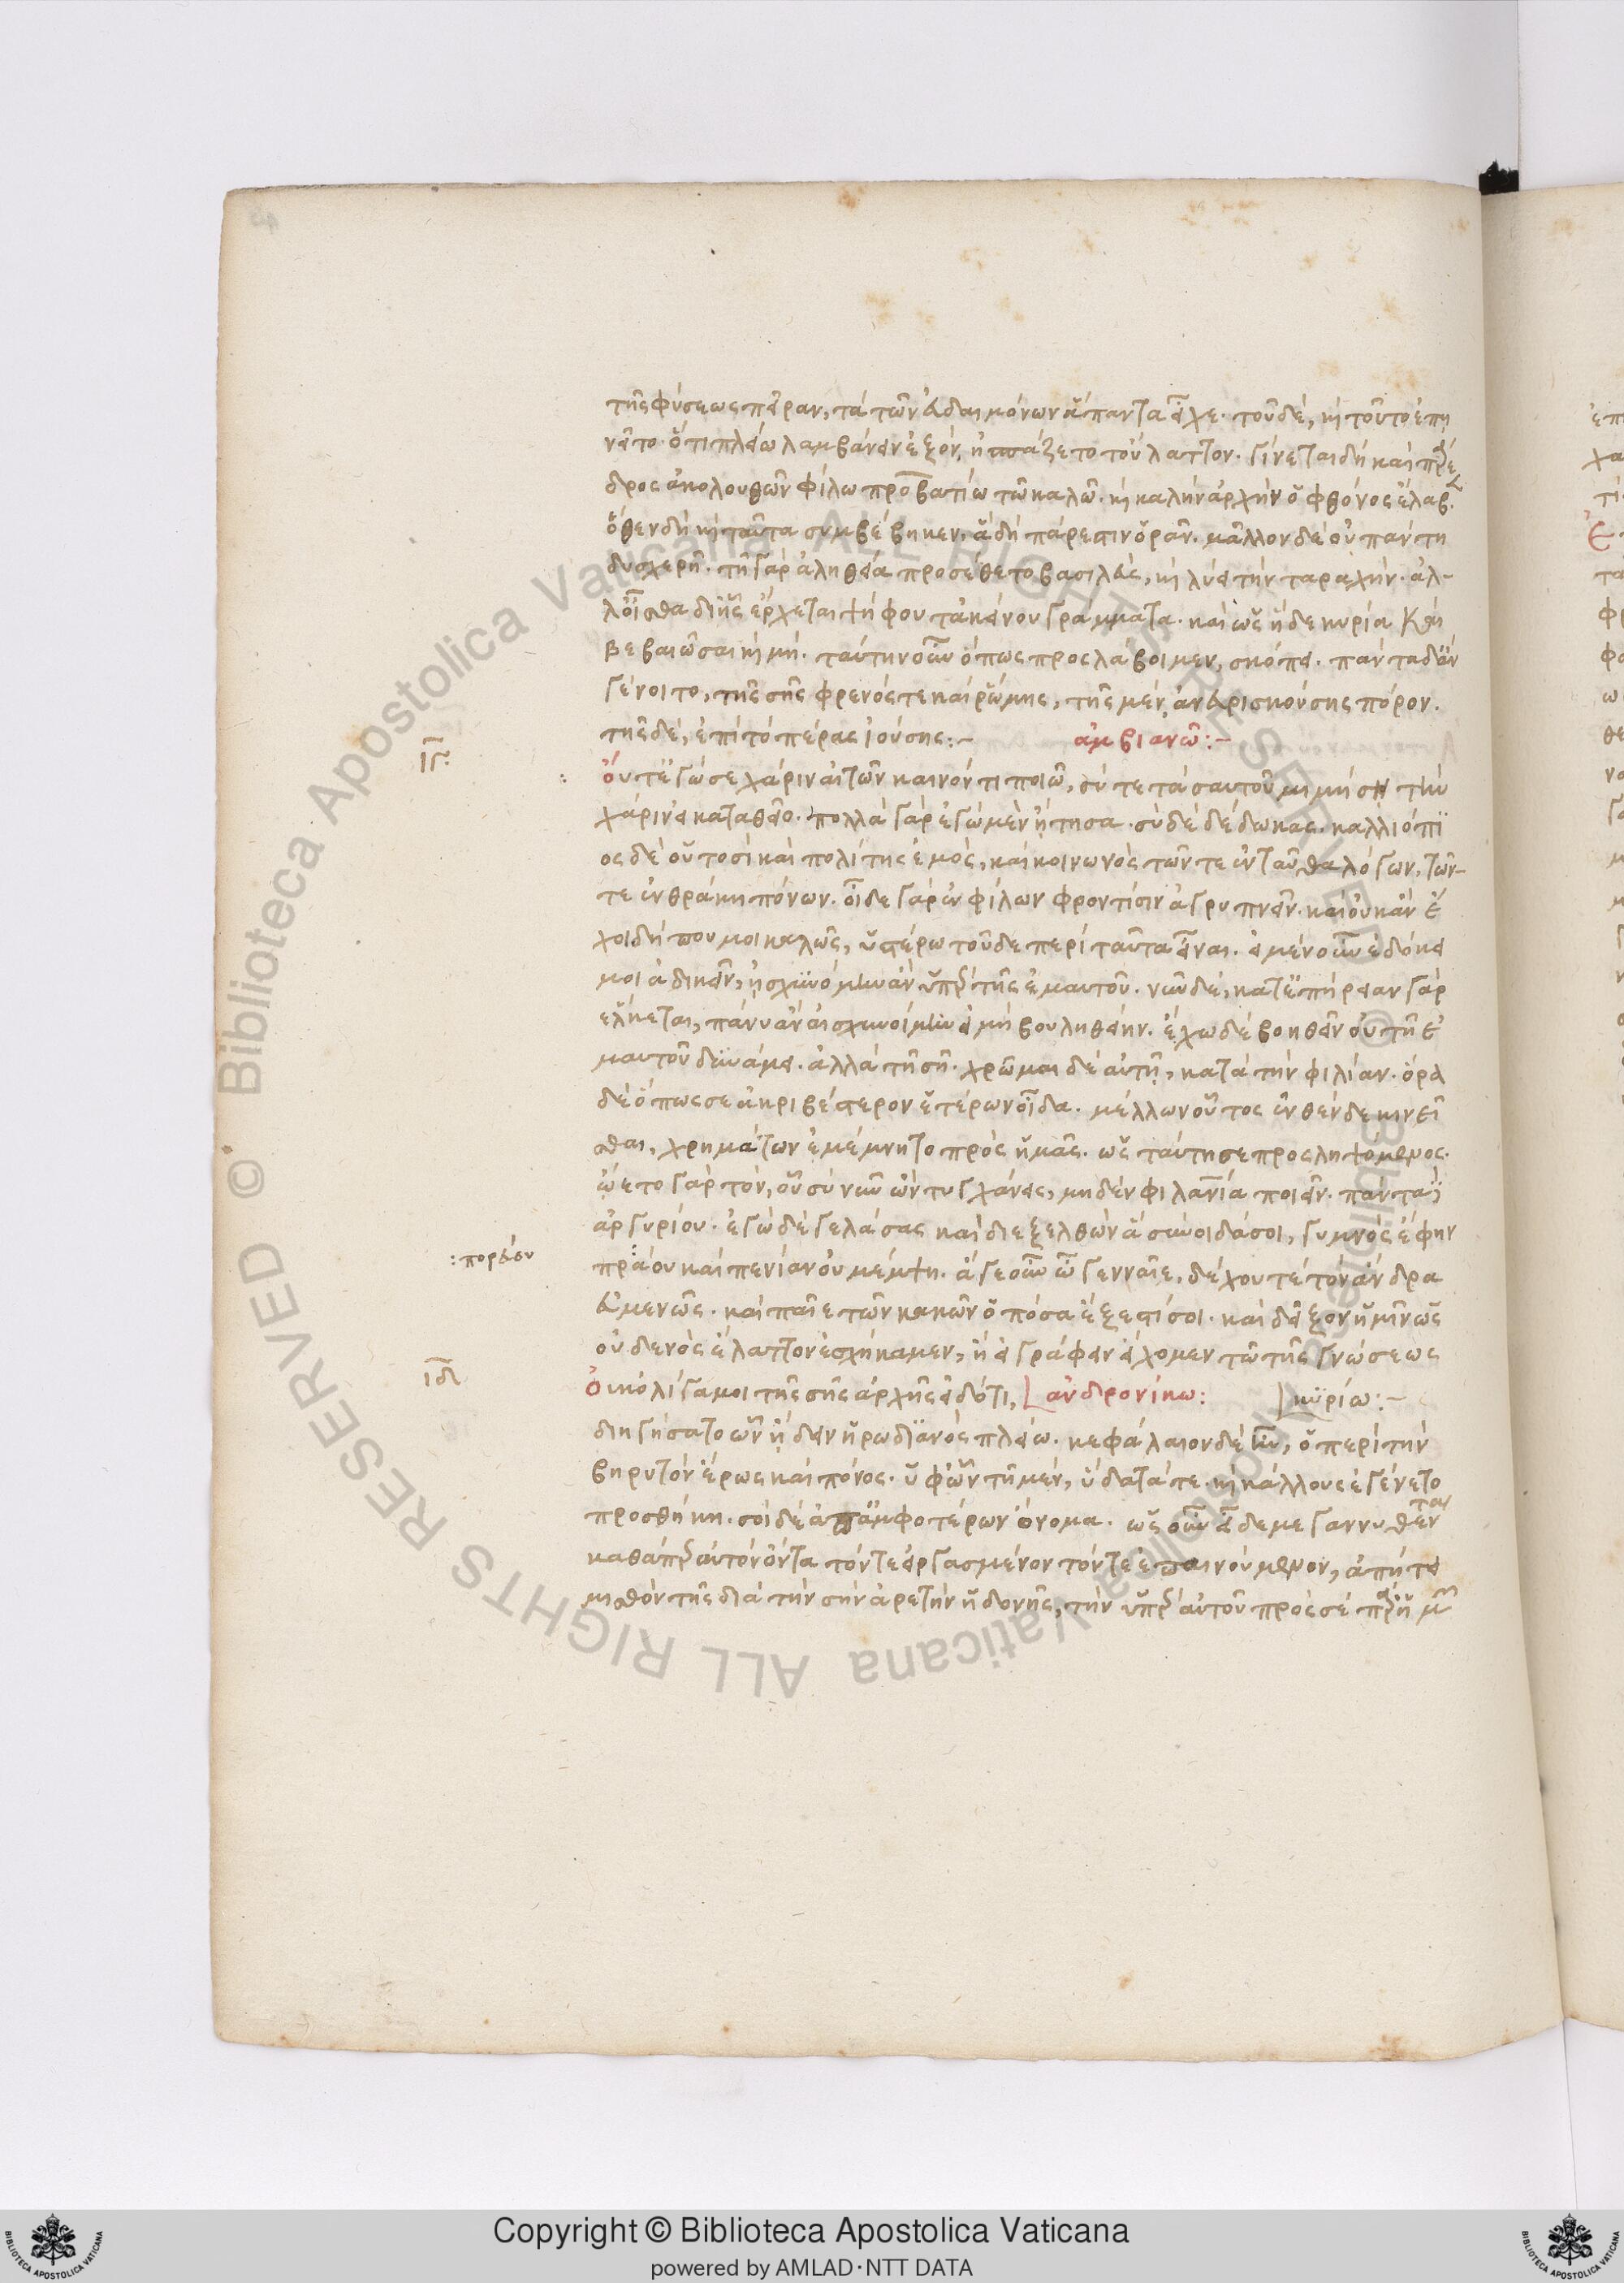 τῆς φύσεως πεῖραν, τὰ τῶν εὐδαιμόνων ἅπαντα εἶχε. τοῦ δὲ, καὶ τοῦτο ἐπῃ
νεῖτο. ὅτι πλείω λαμβάνειν ἐξὸν, ἠσπάζετο τοὔλαττον. γίνεται δὴ καὶ πάρε
δρος ἀκολουθῶν φίλω προβατίω τῶ καλῶ. καὶ καλὴν ἀρχὴν ὁ φθόνος ἔλαβ.
ὅθεν δὴ καὶ ταῦτα συμβέβηκεν, ἃ δὴ πάρεστιν ὁρᾶν. μᾶλλον δὲ οὐ πάντη
δυσχερῆ. τῇ γὰρ ἀληθεία προσέθετο βασιλεὺς, καὶ λύει τὴν ταραχήν. ἀλ-
λ' οἶσθα δι' ἧς ἔρχεται ψήφου τἀκείνου γράμματα. καὶ ὡς ἥδε κυρία καὶ
βεβαιῶσαι καὶ μή. ταύτην οὖν ὅπως προσλάβοιμεν, σκόπει. πάντα δ' ἂν
γένοιτο, τῆς σῆς φρενός τε καὶ ῥώμης, τῆς μὲν, ἀνευρισκούσης πόρον.
τῆς δὲ, ἐπὶ τὸ πέρας ἰούσης:- ἀμβιανῶ:-
ιγ:
οὔτ' ἐγώ σε χάριν αἰτῶν καινόν τι ποιῶ, σύ τε τὰ σαυτοῦ μιμήση τὴν
χάριν εἰ καταθεῖο. πολλὰ γὰρ ἐγὼ μὲν ᾔτησα. σὺ δὲ δέδωκας. καλλιόπι
ος δὲ οὑτοσὶ καὶ πολίτης ἐμὸς, καὶ κοινωνὸς τῶν τε ἐνταῦθα λόγων, τῶν-
τε ἐν θράκη πόνων. οἶδε γὰρ ἐν φίλων φροντίσιν ἀγρυπνεῖν. καὶ οὐκ ἂν ἔ
χοι δή που μοι καλῶς, ὑστέρω τοῦδε περὶ ταῦτα εἶναι. εἰ μὲν οὖν ἐδόκει
μοι ἀδικεῖν, ᾐσχυνόμην ἂν ὑπέρ τῆς ἐμαυτοῦ. νῦν δὲ, κατ' ἐπήρειαν γὰρ
ἕλκεται, πάνυ ἂν αἰσχυνοίμην εἰ μὴ βουληθείην. ἔχω δὲ βοηθεῖν οὐ τῆ ἐ
μαυτοῦ δυνάμει. ἀλλὰ τῆ σῆ. χρῶμαι δὲ αὐτῆ, κατὰ τὴν φιλίαν. ὅρα
δὲ ὅπως σε ἀκριβέστερον ἑτέρων οἶδα. μέλλων οὗτος ἐνθένδε κινεῖ
σθαι, χρημάτων ἐμέμνητο πρὸς ἡμᾶς. ὡς ταύτη σε προσληψόμενος.
ᾤετο γὰρ τὸν, οὗ σὺ νῦν ὢν τυγχάνεις, μηδὲν φιλανία ποιεῖν. πάντα δ'
ἀργυρίου. ἐγὼ δὲ γελάσας καὶ διεξελθὼν ἃ σύνοιδά σοι, γυμνὸς ἔφην
: πορεύου
πράου καὶ πενίαν οὐ μέμψη. ἄγε οὖν ὦ γενναῖε, δέχου τέ τὸν ἄνδρα
εὐμενῶς. καὶ παῦε τῶν κακῶν ὁπόσα ἔξεστί σοι. καὶ δεῖξον ἡμῖν ὡς
οὐδενὸς ἔλαττον ἐσχήκαμεν, ἢ εἰ γράφειν εἴχομεν τῶ τῆς γνώσεως
ιδ
ὀκυ ὀλίγα μοι τῆς σῆς ἀρχῆς εἰδότι, ἀνδρονίκω: κυρίω:-
διηγήσατο ὧν ᾔδειν ἡρωδιανὸς πλείω. κεφάλαιον δὲ ἦν, ὁ περὶ τὴν
βηρυτὸν ἔρως καὶ πόνος. ὑφ' ὧν τῆ μὲν, ὕδατά τε καὶ κάλλους ἐγένετο
προσθήκη. σοὶ δὲ ἀπ' ἀμφοτέρων ὄνομα. ὡς οὖν εἶδέ με γαννυθεντα
καθάπερ αὐτὸν ὄντα τόν τε εἰργασμένον τόν τε ἐπαινούμενον, ἀπῄτει
μισθὸν τῆς διὰ τὴν σὴν ἀρετὴν ἡδονῆς, τὴν ὑπὲρ αὐτοῦ πρὸς σὲ παρ' ἡμ
Copyright © Biblioteca Apostolica Vaticana
powered by AMLAD·NTT DATA